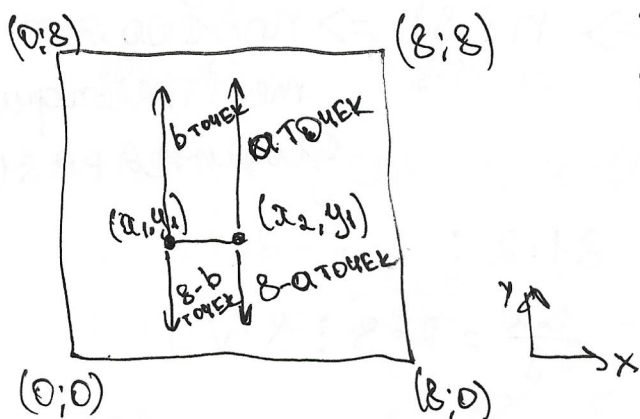 (0;8)
(8;8)
b точек
а точек
(x₁,y₁)
(x₂,y₁)
8-b
точек
8-а точек
(0;0)
(8;0)
y
x